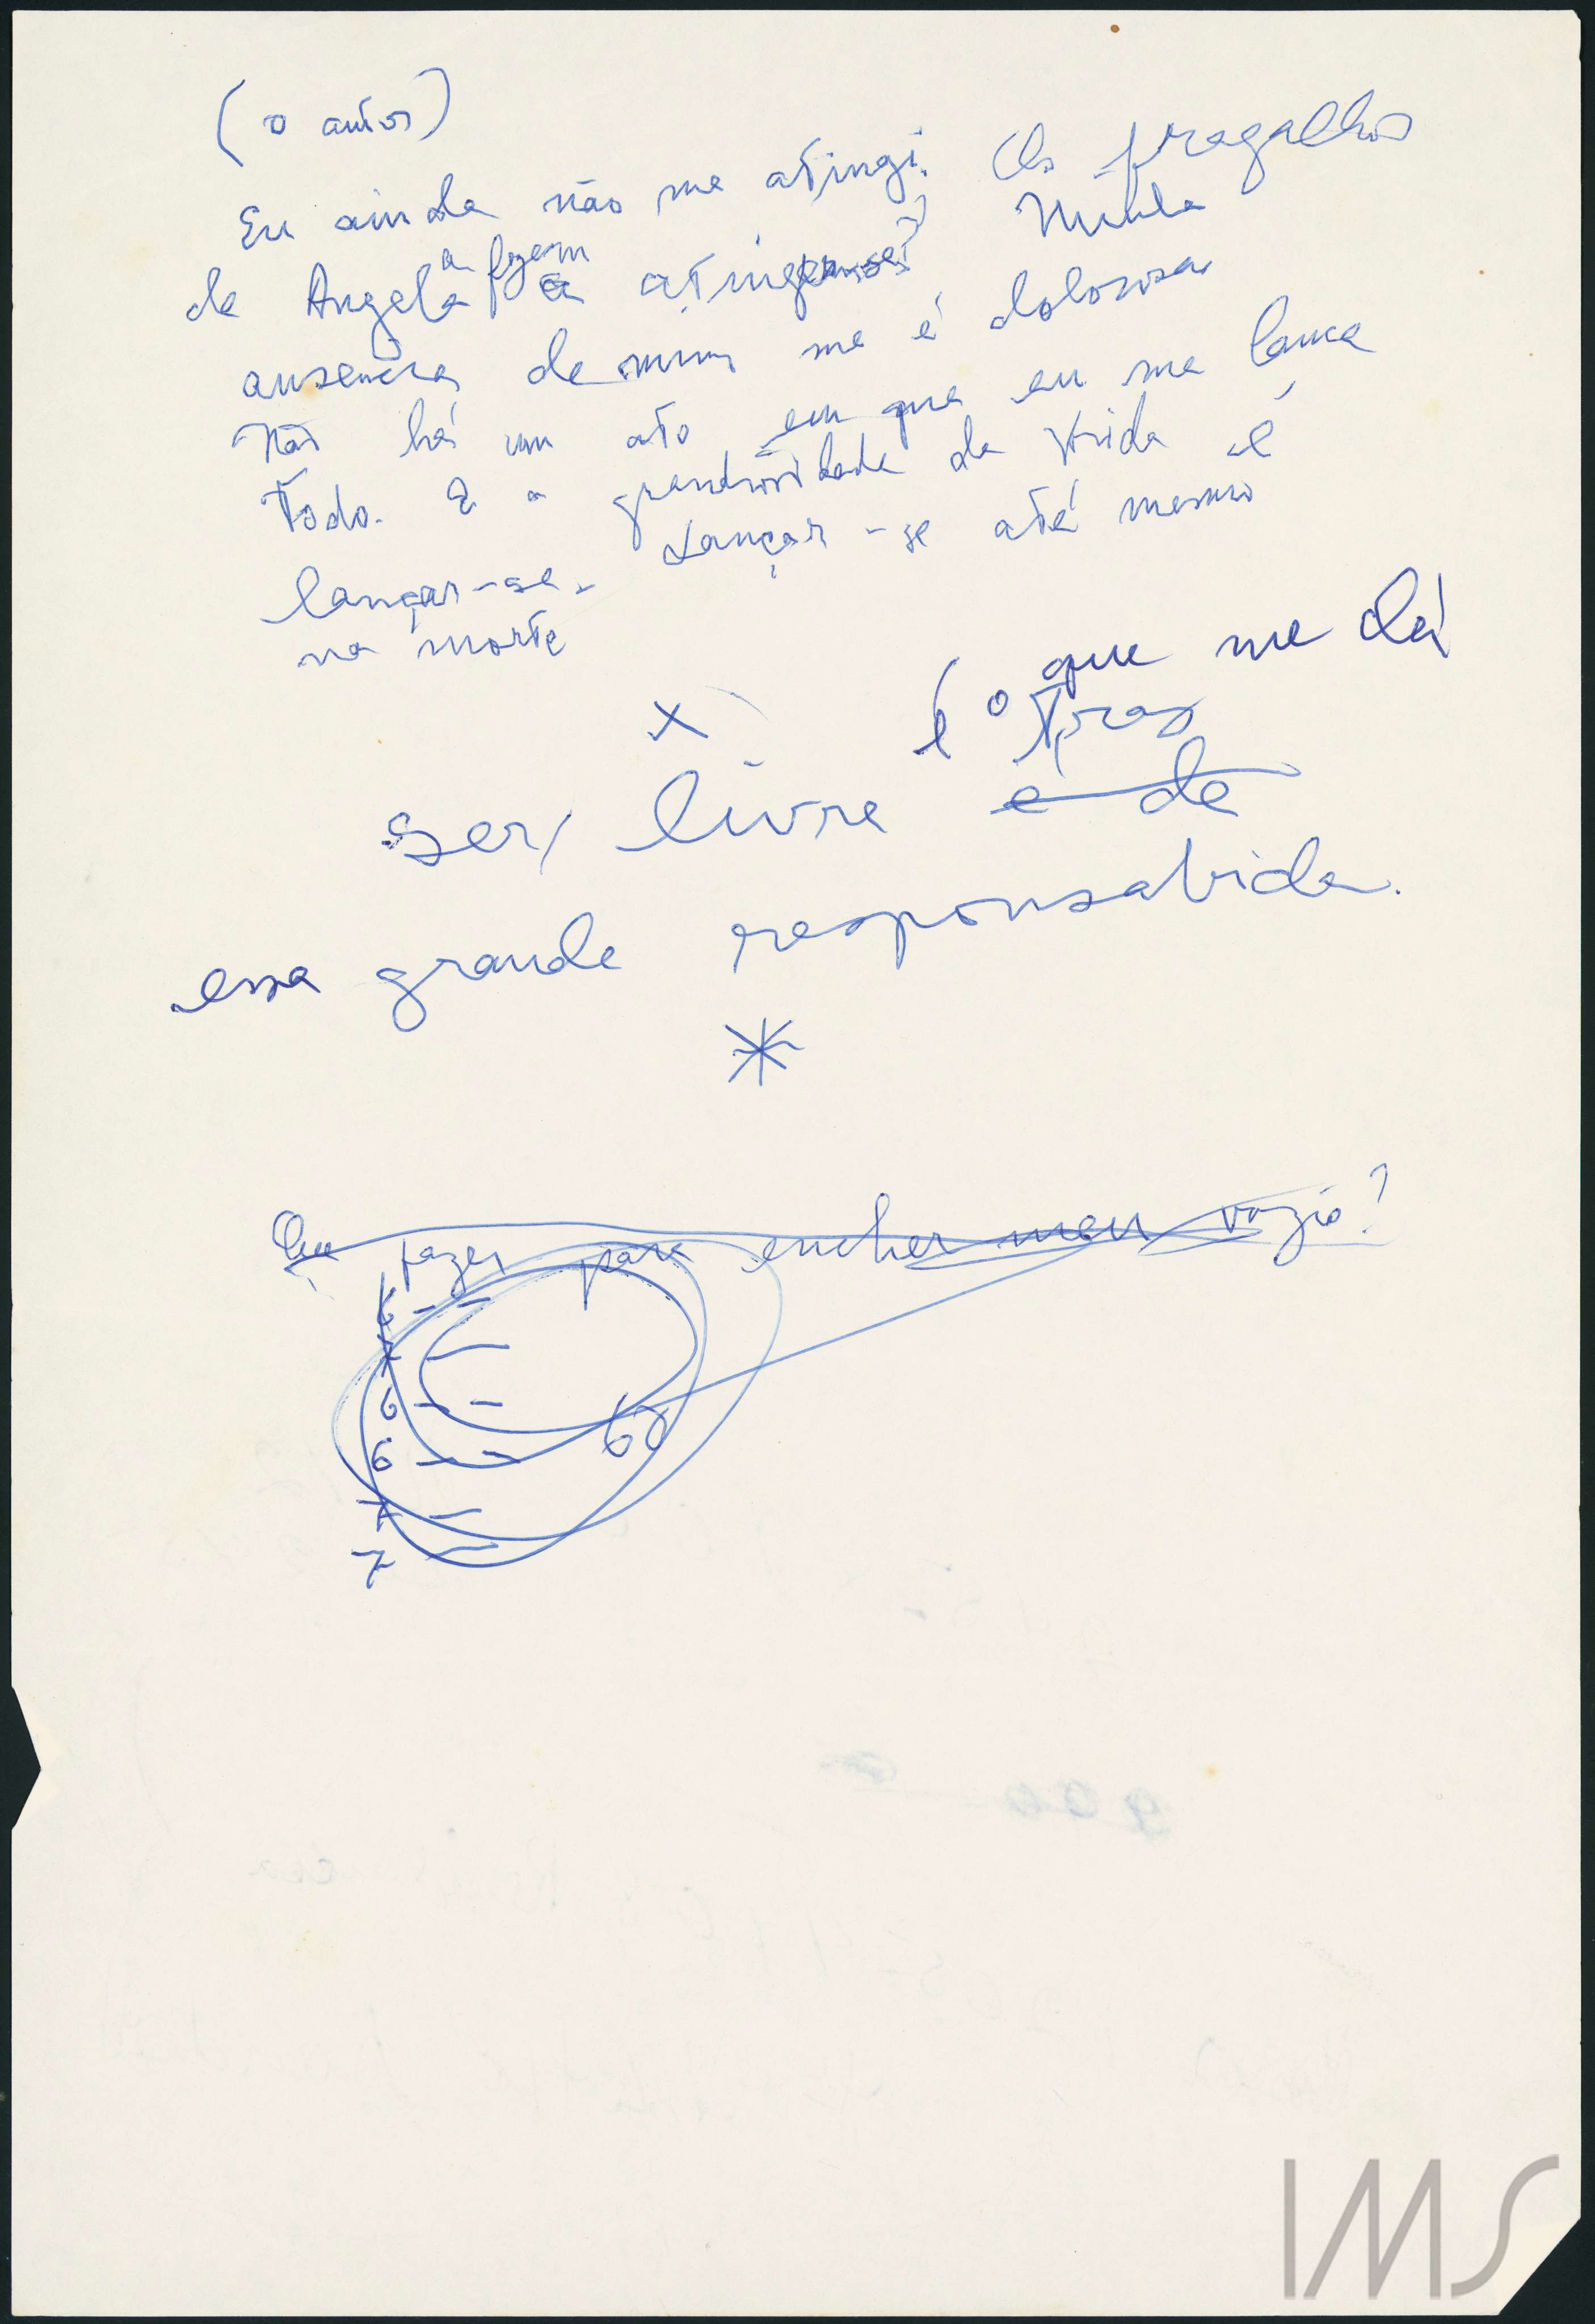 (o autor)
Eu ainda não me atingi. Os fragalhos
de Angela a fazem atingir-se? Minha
ausencia de mim me é dolorosa
Não há um ato em que eu me lance
todo. E a grandiosidade da vida é
lançar-se. Lançar-se até mesmo
na morte
x
é o que me dá
Ser livre é de
essa grande responsabida.
*
Que fazer para encher meu vazio?
6 - -
7 - -
6 - -
6 - -
7 -
7 -
IMS